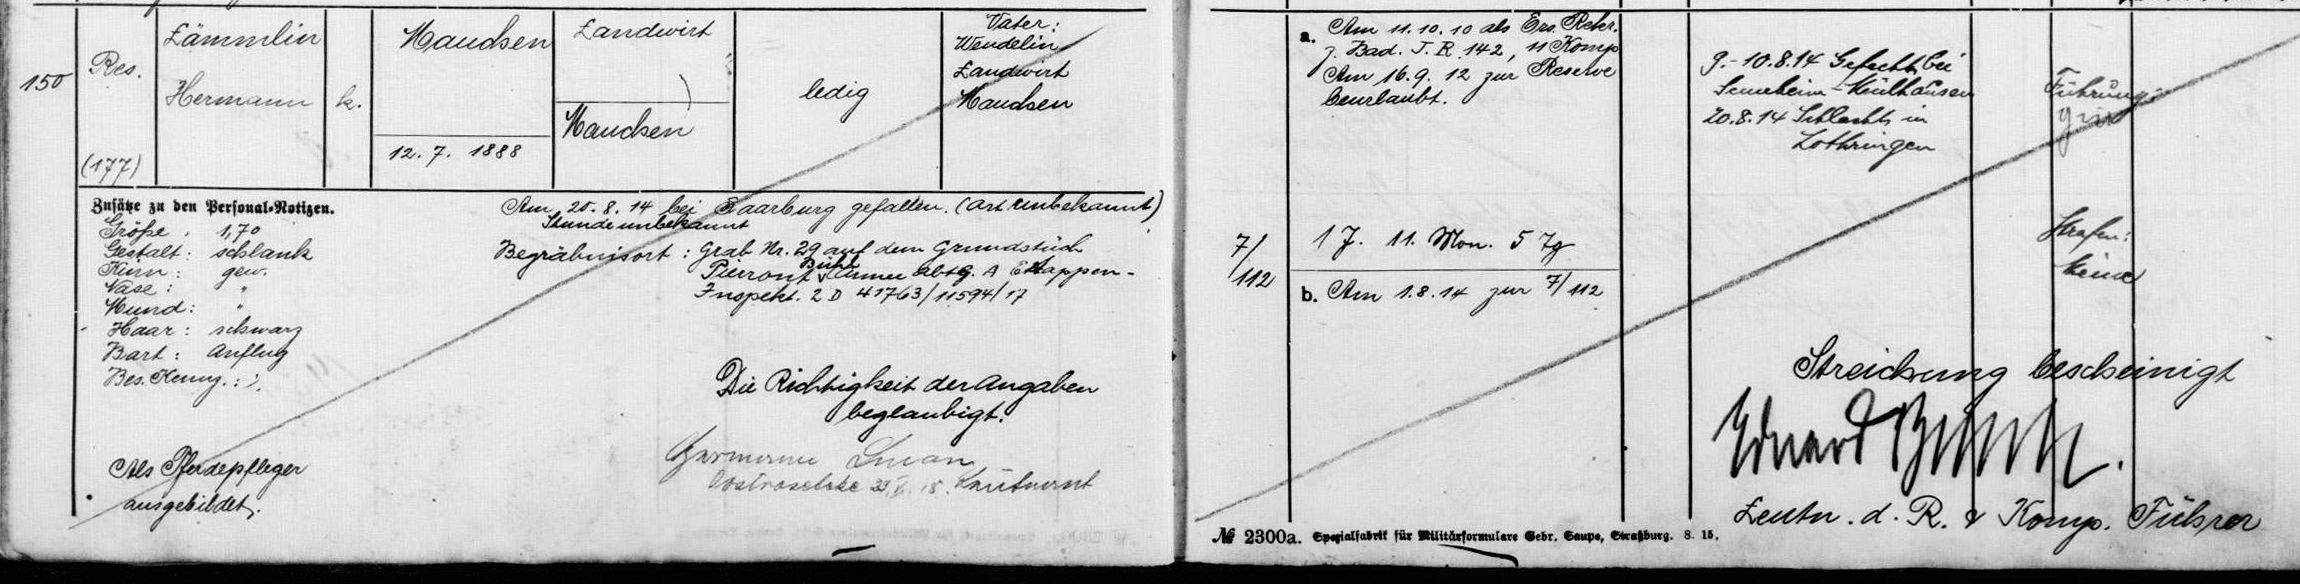 150
Res.
(177)
Lämmlin
Hermann
k.
Mauchen
12. 7. 1888
Landwirt
Mauchen
ledig
Vater:
Wendelin
Landwirt
Mauchen
Zusätze zu den Personal-Notizen.
Größe . 1,70
Gestalt: schlank
Kinn: gew.
Nase: "
Mund: "
Haar: schwarz
Bart: Anflug
Bes. Kennz.: :/.
Als Pferdepfleger
ausgebildet.
Am 20. 8. 14 bei Saarburg gefallen. (Art unbekannt)
Stunde unbekannt
Begräbnisort: Grab Nr. 29 auf dem Grundstück
Pierront Bühl Armee Abtg. A Etappen-
Inspekt. 2 D 41763/11594/17
Die Richtigkeit der Angaben
beglaubigt.
Leutnant
7/
112
a. Am 11. 10. 10 als Ers. Rekr.
7. Bad. I. R. 142, 11 Komp
Am 16. 9. 12 zur Reserve
beurlaubt.
1 J. 11. Mon. 5 Tg
b. Am 1. 8. 14 zur 7/112
9.-10.8.14 Gefecht bei
Sennheim-Mülhausen
20.8.14 Schlacht in
Lothringen
Führung:
gut
Strafen:
keine
Streichung bescheinigt
Eduard
Leutn. d. R. & Komp. Führer
№ 2300a. Spezialfabrik für Militärformulare Gebr. Gaupe, Straßburg. 8. 15.